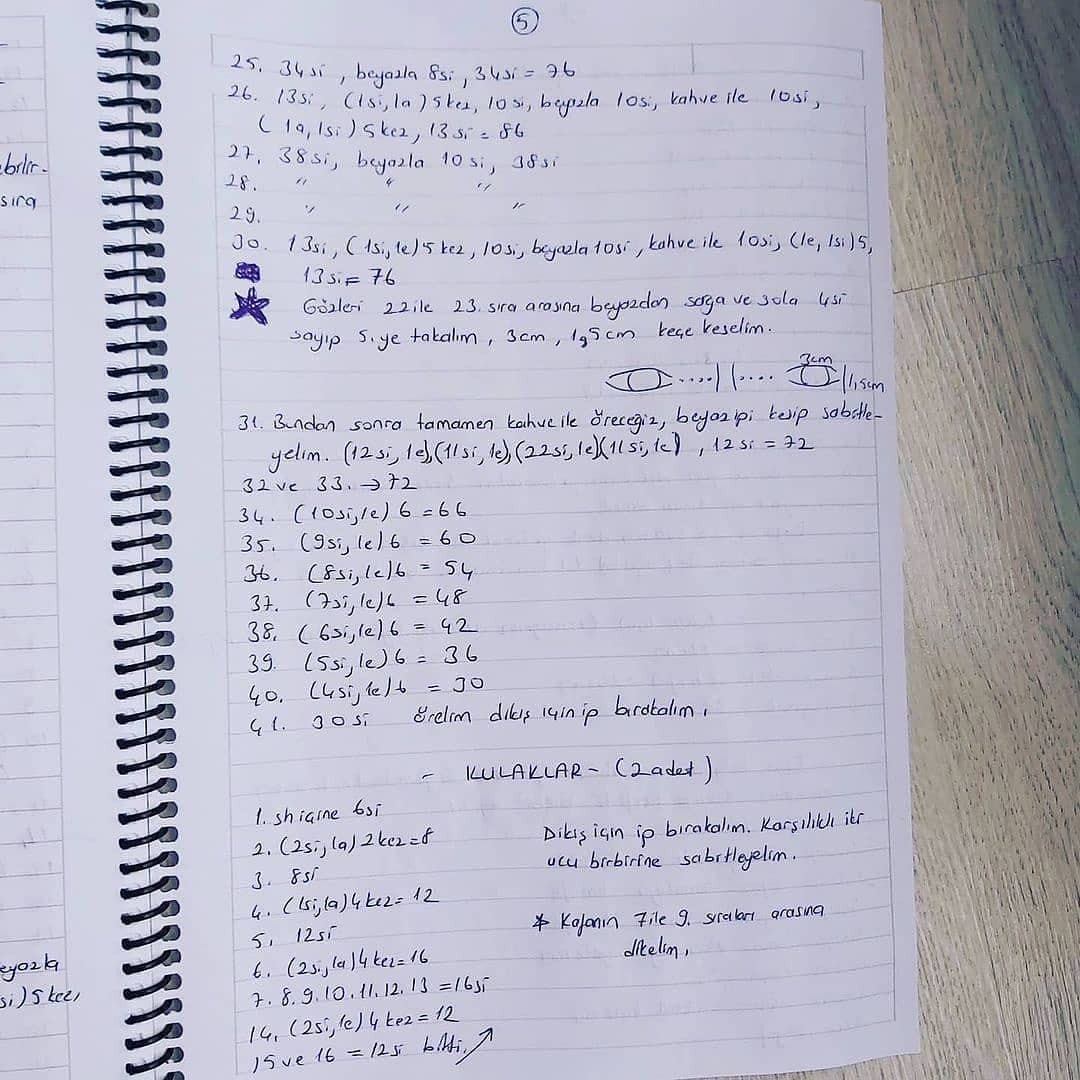 5
25. 34si, beyazla 8si, 34si = 76
26. 13si, (1si, 1a) 5kez, 10si, beyazla 10si, kahve ile 10si,
(1a, 1si) 5kez, 13si = 86
27. 38si, beyazla 10si, 38si
28. " " "
29. " " "
30. 13si, (1si, 1e) 5 kez, 10si, beyazla 10si, kahve ile 10si, (1e, 1si) 5,
13si = 76
Gözleri 22 ile 23. sıra arasına beyazdan sağa ve sola 4si
sayıp 5.ye takalım, 3cm, 1,5cm keçe keselim.
3cm
1,5cm
31. Bundan sonra tamamen kahve ile öreceğiz, beyaz ipi kesip sabitle-
yelim. (12si, 1e), (11si, 1e), (22si, 1e) (11si, 1e), 12si = 72
32 ve 33. → 72
34. (10si, 1e) 6 = 66
35. (9si, 1e) 6 = 60
36. (8si, 1e) 6 = 54
37. (7si, 1e) 6 = 48
38. (6si, 1e) 6 = 42
39. (5si, 1e) 6 = 36
40. (4si, 1e) 6 = 30
41. 30si örelim dikiş için ip bırakalım.
- KULAKLAR - (2 adet)
1. sh içine 6si
2. (2si, 1a) 2kez = 8
3. 8si
4. (1si, 1a) 4kez = 12
5. 12si
6. (2si, 1a) 4kez = 16
7. 8. 9. 10. 11. 12. 13 = 16si
14. (2si, 1e) 4kez = 12
15 ve 16 = 12si bitti.
Dikiş için ip bırakalım. Karşılıklı iki
ucu birbirine sabitleyelim.
* Kafanın 7 ile 9. sıraları arasına
dikelim.
ebilir.
sıra
beyazla
si) 5 kez,